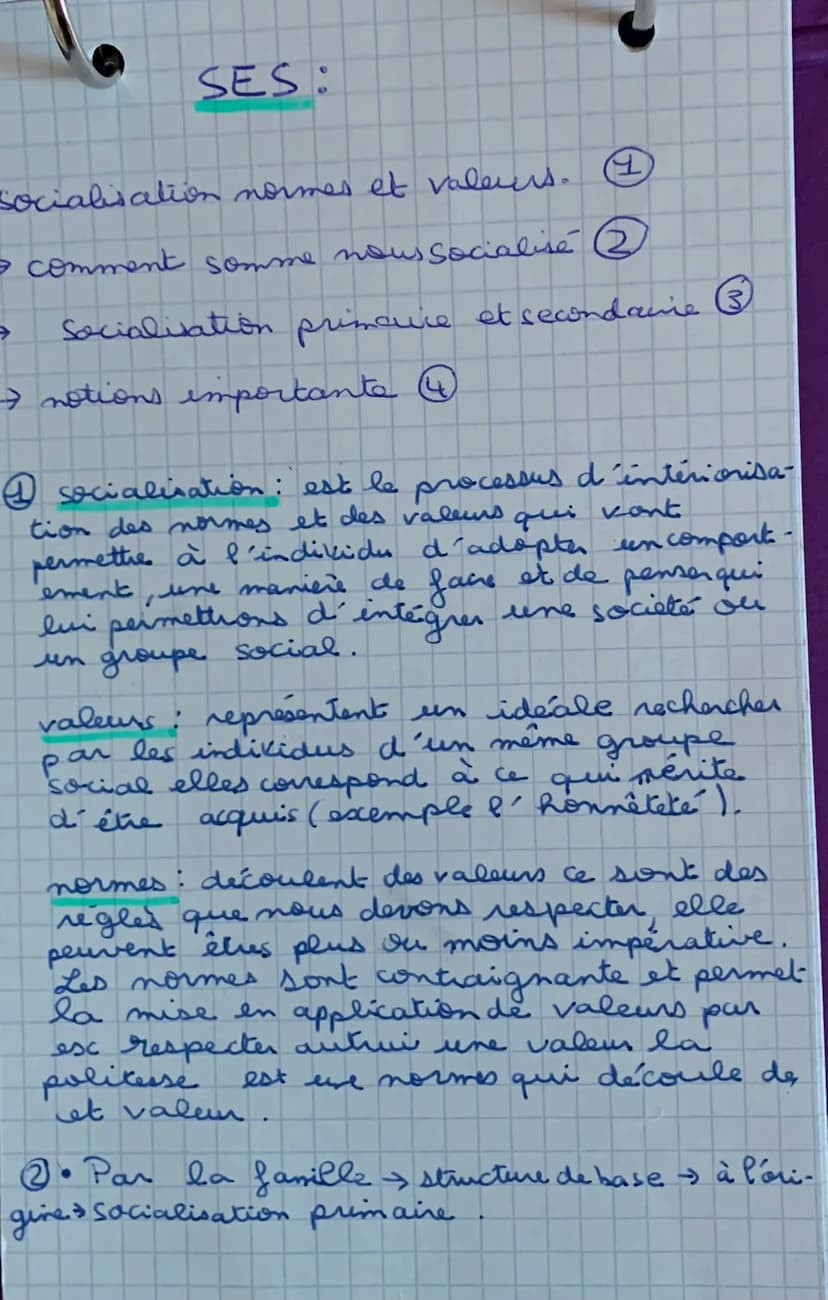 SES :
socialisation normes et valeurs. ①
→ comment somme nous socialisé ②
→ socialisation primaire et secondaire ③
→ notions importante ④
① socialisation : est le processus d'intériorisa-
tion des normes et des valeurs qui vont
permettre à l'individu d'adopter un comport-
ement, une manière de faire et de penser qui
lui permettrons d'intégrer une société ou
un groupe social.
valeurs : représentent un idéale rechercher
par les individus d'un même groupe
social elles correspond à ce qui mérite
d'être acquis (exemple l'honnêteté).
normes : découlent des valeurs ce sont des
règles que nous devons respecter, elle
peuvent êtres plus ou moins impérative.
Les normes sont contraignante et permet
la mise en application de valeurs par
esc respecter autrui une valeur la
politesse est une normes qui découle de
cet valeur.
② • Par la famille → structure de base → à l'ori-
gine → socialisation primaire.